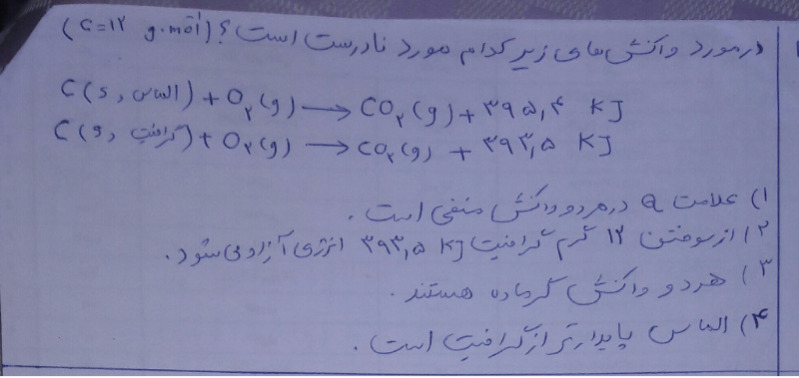 درمورد واکنش های زیر کدام مورد نادرست است؟ (C=۱۲ g.mol⁻¹)
C(s, الماس) + O₂(g) → CO₂(g) + ۳۹۵,۴ KJ
C(s, گرافیت) + O₂(g) → CO₂(g) + ۳۹۳,۵ KJ
۱) علامت q در هر دو واکنش منفی است.
۲) از سوختن ۱۲ گرم گرافیت ۳۹۳,۵ KJ انرژی آزاد می شود.
۳) هر دو واکنش گرماده هستند.
۴) الماس پایدارتر از گرافیت است.